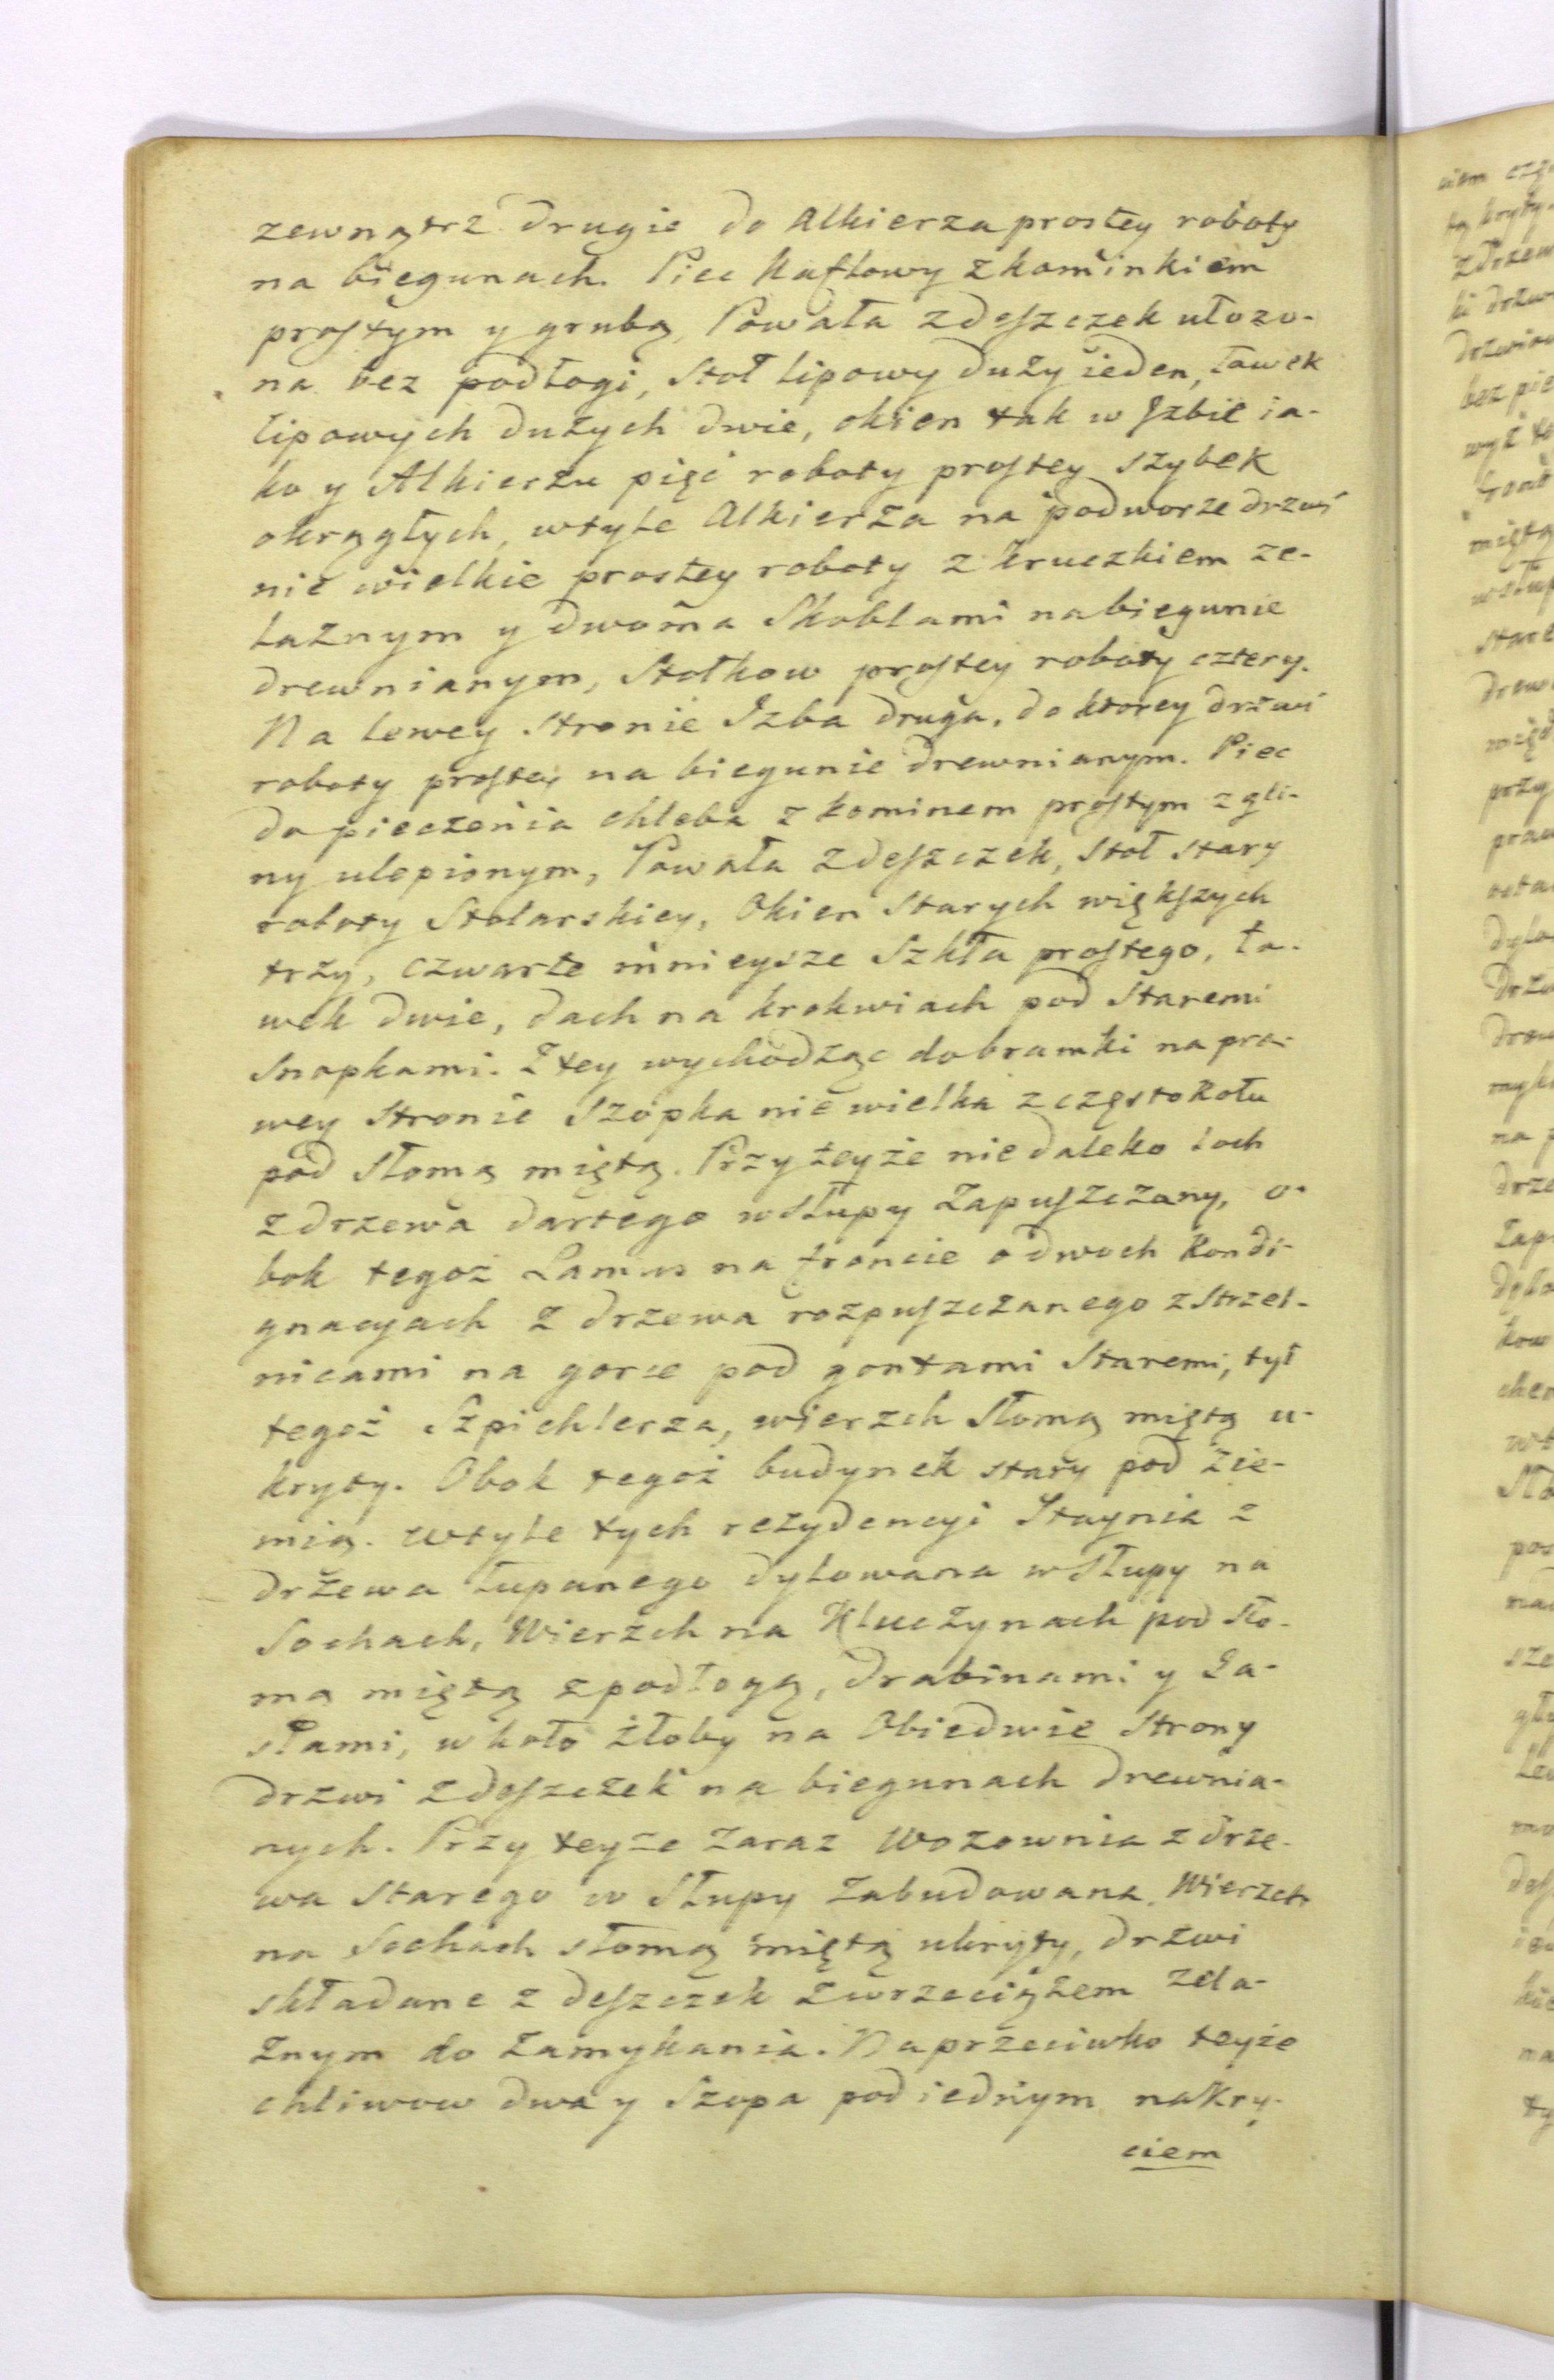 zewnątrz drugie do Alkierza prostey roboty
na biegunach. Piec Kaflowy z kominkiem
prostym y grubą, Powała z deszczek ułozo-
na bez podłogi, Stoł lipowy duży ieden, ławek
lipowych dużych dwie, okien tak w Izbie ia-
ko y Alkierzu pięć roboty prostey szybek
okrągłych, w tyle Alkierza na podworze drzwi
nie wielkie prostey roboty z kruczkiem że-
laznym y dwoma Skoblami na biegunie
drewnianym, Stołkow prostey roboty cztery.
Na lewey stronie Izba druga, do ktorey drzwi
roboty prostey na biegunie drewnianym. Piec
do pieczenia chleba z kominem prostym z gli-
ny ulepionym, Powała z deszczek, stoł stary
roboty Stolarskiey, Okien Starych większych
trzy, czwarte mnieysze Szkła prostego, ła-
wek dwie, dach na krokwiach pod Staremi
Snopkami. Z tey wychodząc do bramki na pra-
wey stronie Szopka nie wielka z częstokołu
pod Słomą miętą. Przy teyże niedaleko loch
z drzewa dartego w słupy zapuszczany, o-
bok tegoż Lamus na froncie o dwoch Kondi-
gnacyach z drzewa rozpuszczanego z Strzel-
nicami na gorze pod gontami Staremi, tył
tegoż Szpichlerza, wierzch Słomą miętą u-
kryty. Obok tegoż budynek stary pod zie-
mią. w tyle tych rezydencyi Staynia z
drzewa łupanego dylowana w Słupy na
Sochach, Wierzch na Kluczynach pod sło-
mą miętą z podłogą, drabinami y Za-
słami, w koło żłoby na Obiedwie Strony
drzwi z deszczek na biegunach drewnia-
nych. Przy teyże zaraz Wozownia z drze-
wa Starego w Słupy zabudowana. Wierzch
na Sochach słomą miętą ukryty, drzwi
składane z deszczek z wrzeciążem żela-
znym do zamykania. Naprzeciwko teyże
chliwow dwa y Szopa pod iednym nakry-
ciem